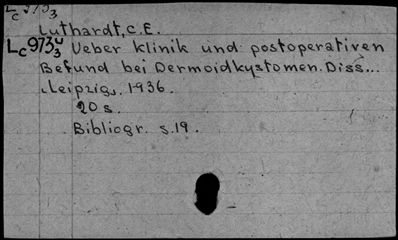 Lc 973 3
Luthardt, C.E.
Lc 973u 3 Ueber klinik und postoperativen
Befund bei Dermoidkystomen. Diss...
Leipzig, 1936.
20 s.
Bibliogr. s.19.